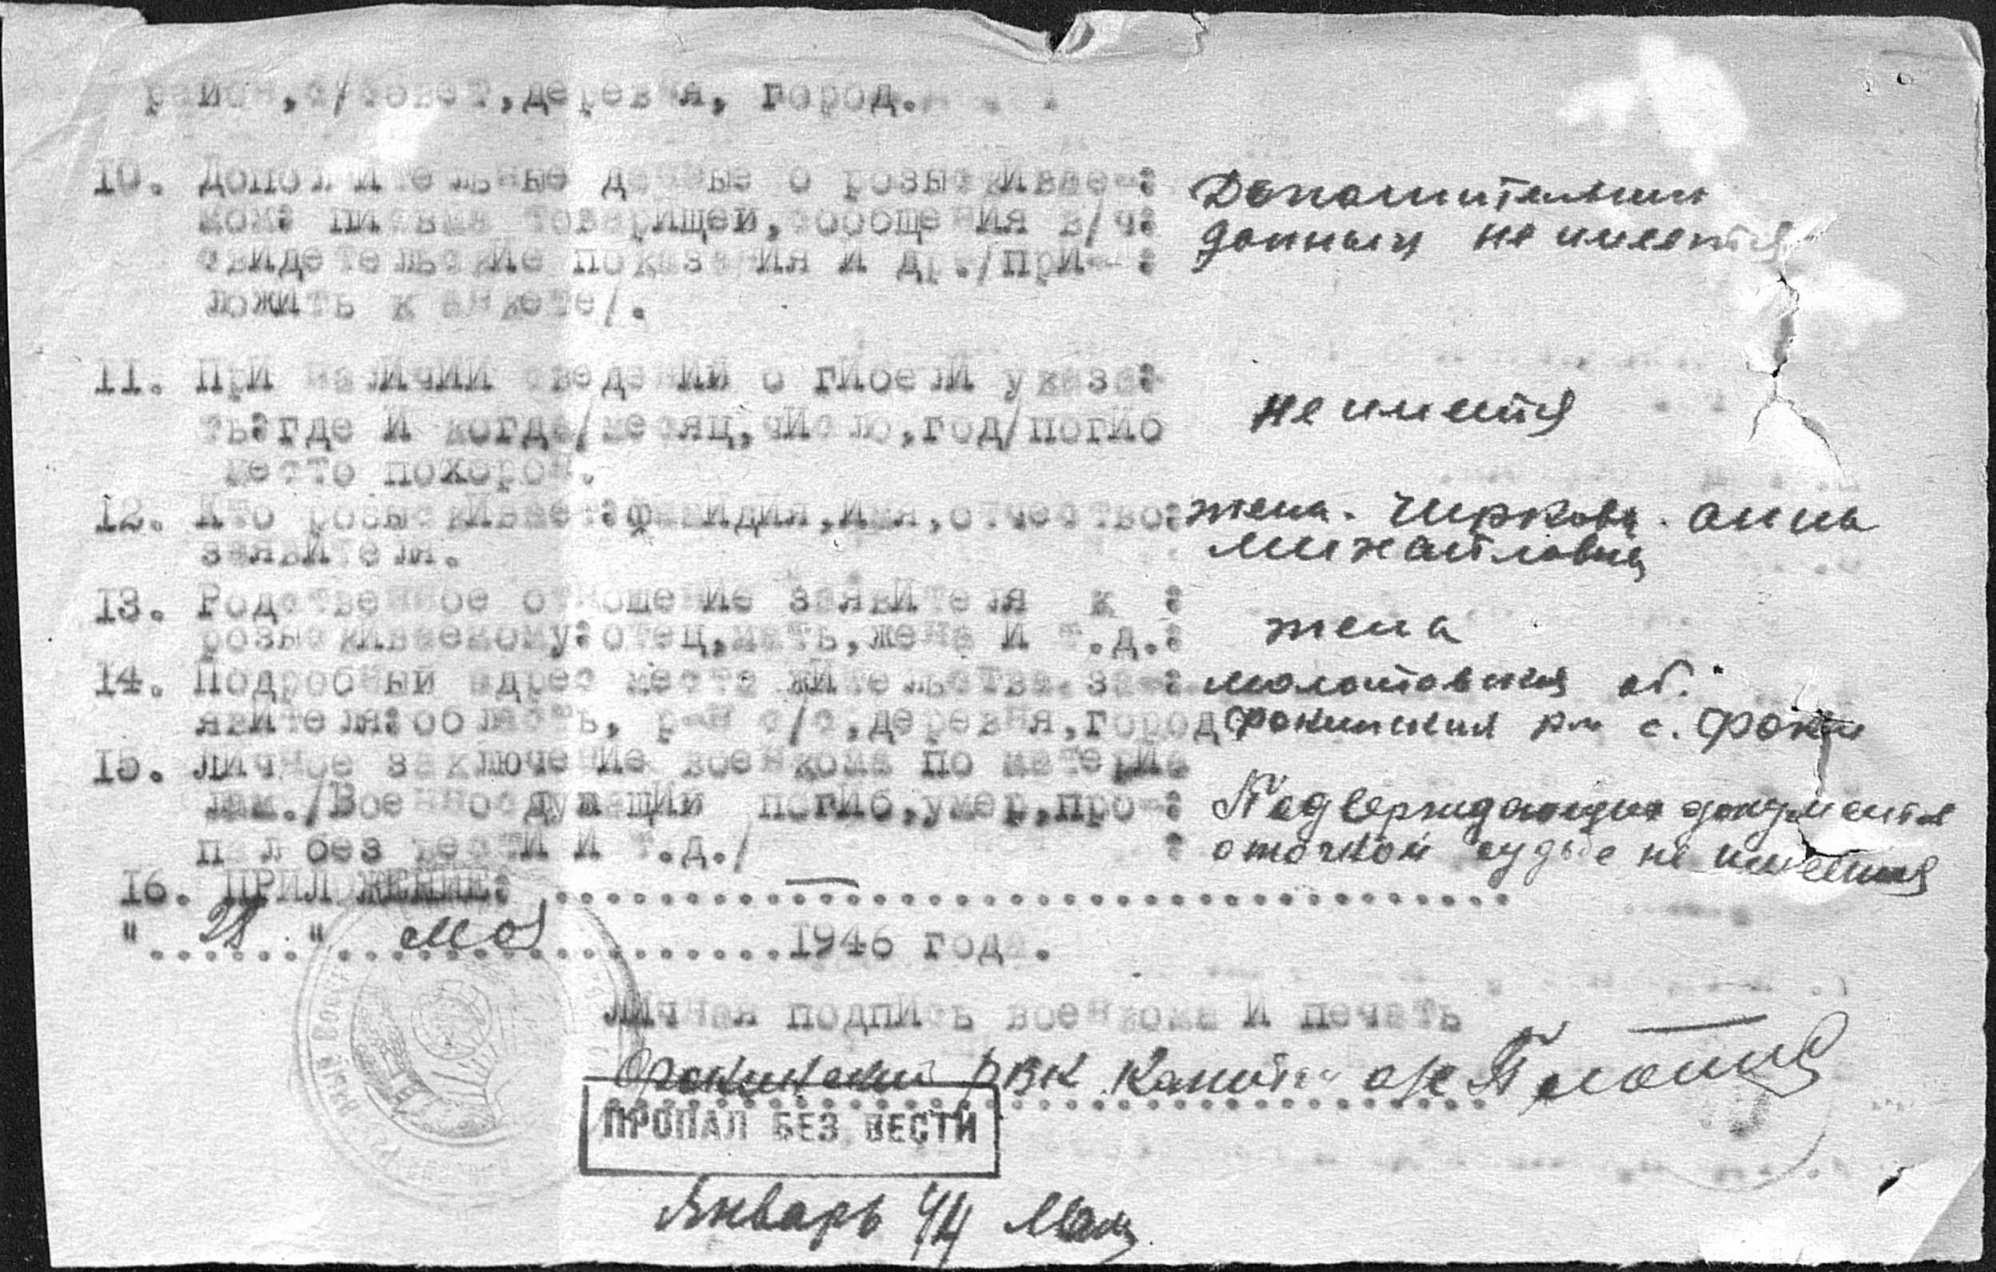 район, с/совет, деревня, город.
10. Дополнительные данные о розыскивае-:
мом: письма товарищей, сообщения в/ч:
свидетельские показания и др./при- :
ложить к анкете/.
Дополнительных
данных не имеется
11. При наличии сведений о гибели указа-:
ть:где и когда/месяц,число,год/погиб
место похорон.
не имеется
12. Кто розыскивает:фамидия,имя,отчество:
заявителя.
жена. Чиркова. Анна
Михайловна
13. Родственное отношение заявителя к :
розыскиваемому:отец,мать,жена и т.д.:
жена
14. Подробный адрес места жительства за-:
явителя:область, р-н с/с,деревня,город
молотовская об.
Фокинский р-н с. Фоки
15. Личное заключение военкома по материа
лам./Военнослужащий погиб,умер,про-:
пал без вести и т.д./ :
Подверждающих документов
о точной судьбе не имеется
16. ПРИЛОЖЕНИЕ: ........................................
"..28.." ..мая..............1946 года.
Личная подпись военкома и печать
Фокинский РВК Капитан
ПРОПАЛ БЕЗ ВЕСТИ
Январь 44